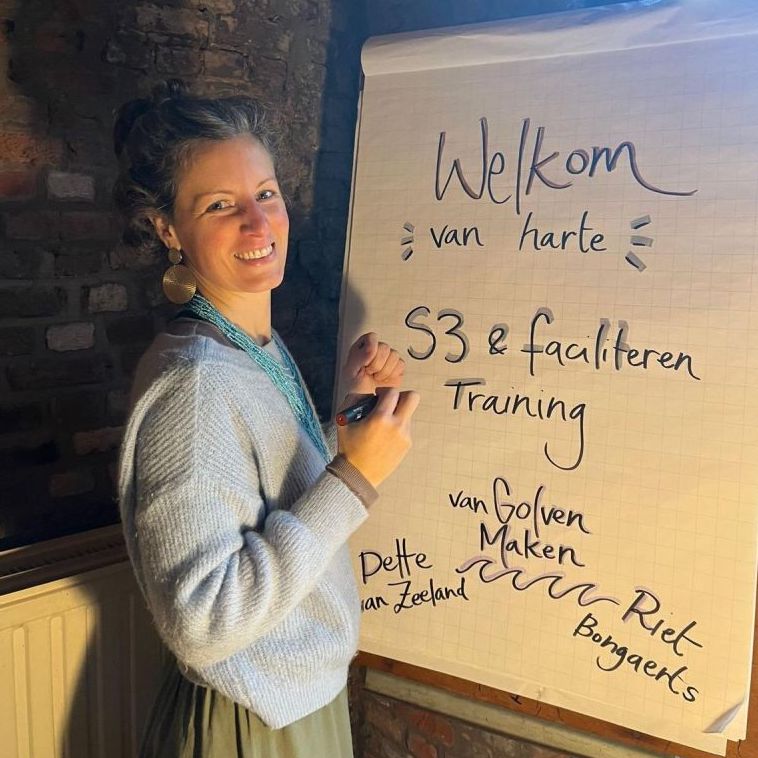 Welkom
van harte
S3 & faciliteren
Training
van Golven
Maken
Dette
van Zeeland
Riet
Bongaerts